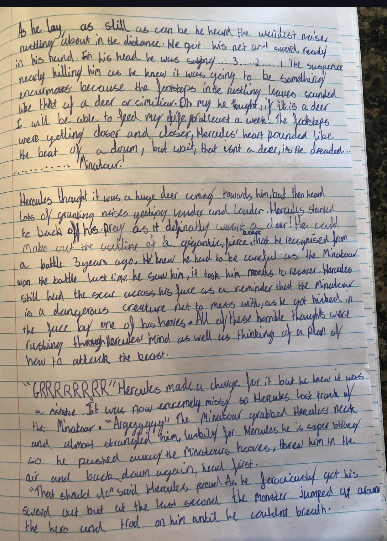 As he lay, as still as can be he heard the weirdest noise
rustling about in the distance. He got his net and sword ready
in his hand. In his head he was saying 3...2...1 The suspense
nearly killing him as he knew it was going to be something
enourmous because the footsteps in the rustling leaves sounded
like that of a deer or similar. Oh my he thought, if it is a deer
I will be able to feed my wife for atleast a week. The footsteps
were getting closer and closer, Hercules' heart pounded like
the beat of a drum, but wait, that isnt a deer, its the dreaded...
......... Minataur!
Hercules thought it was a huge deer coming towards him, but then heard
lots of grunting noises getting louder and louder. Hercules started
to back off his prey as, it definatly wasn't a deer! He could
make out the outline of a gigantic, fierce that he recognised from
a battle 3 years ago. He knew he had to be careful as the Minataur
won the battle last time he saw him, it took him months to recover. Hercules
still had the scar across his face as a reminder that the Minataur
is a dangerous creature not to mess with, as he got kicked in
the face by one of his hooves. All of these horrible thoughts were
rushing through Hercules' mind as well as thinking of a plan of
how to attack the beast.
"GRRRRRRRR" Hercules made a charge for it but he knew it was
a mistake. It was now extremely misty so Hercules lost track of
the Minataur. The Minataur grabbed Hercules neck
and almost strangled him, luckily for Hercules he is super strong
so he pushed away the Minataurs hooves, threw him in the
air and back down again, head first.
"That should do" said Hercules proud. As he ferociously got his
sword out but at the last second the monster jumped up around
the hero and trod on him until he couldnt breath.